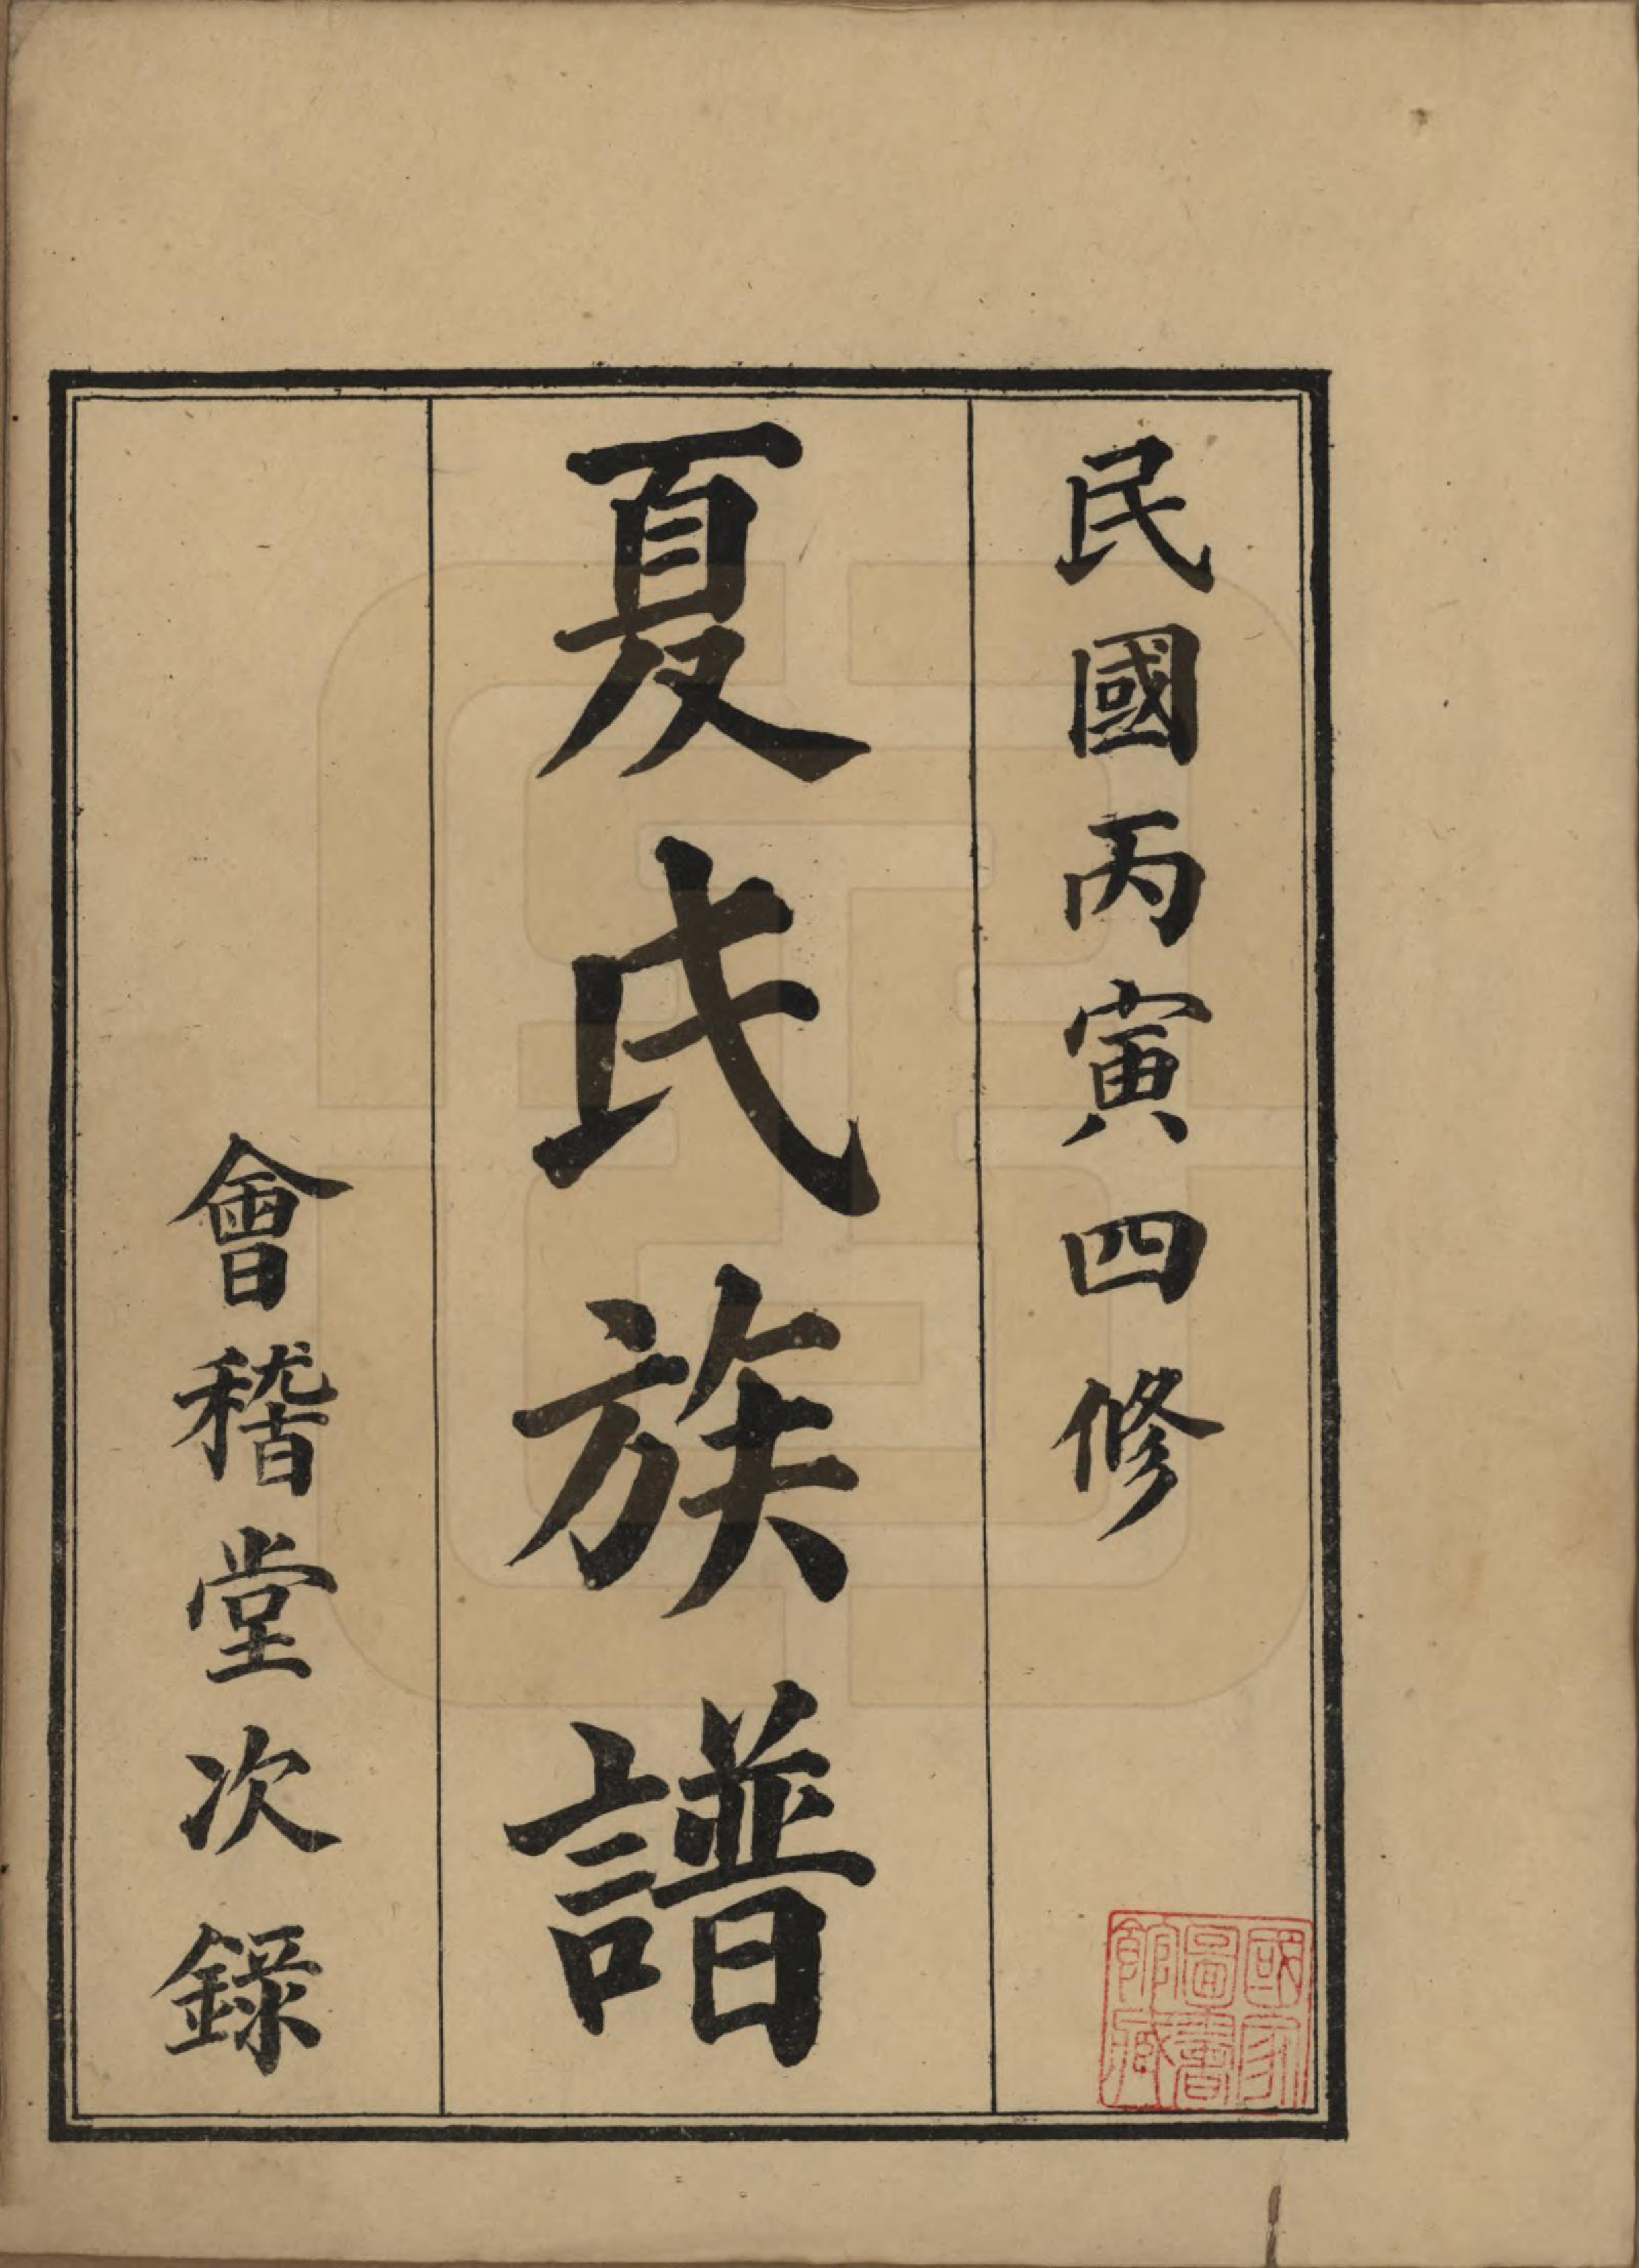 民國丙寅四修
夏氏族譜
會稽堂次錄
國家
圖書
館藏